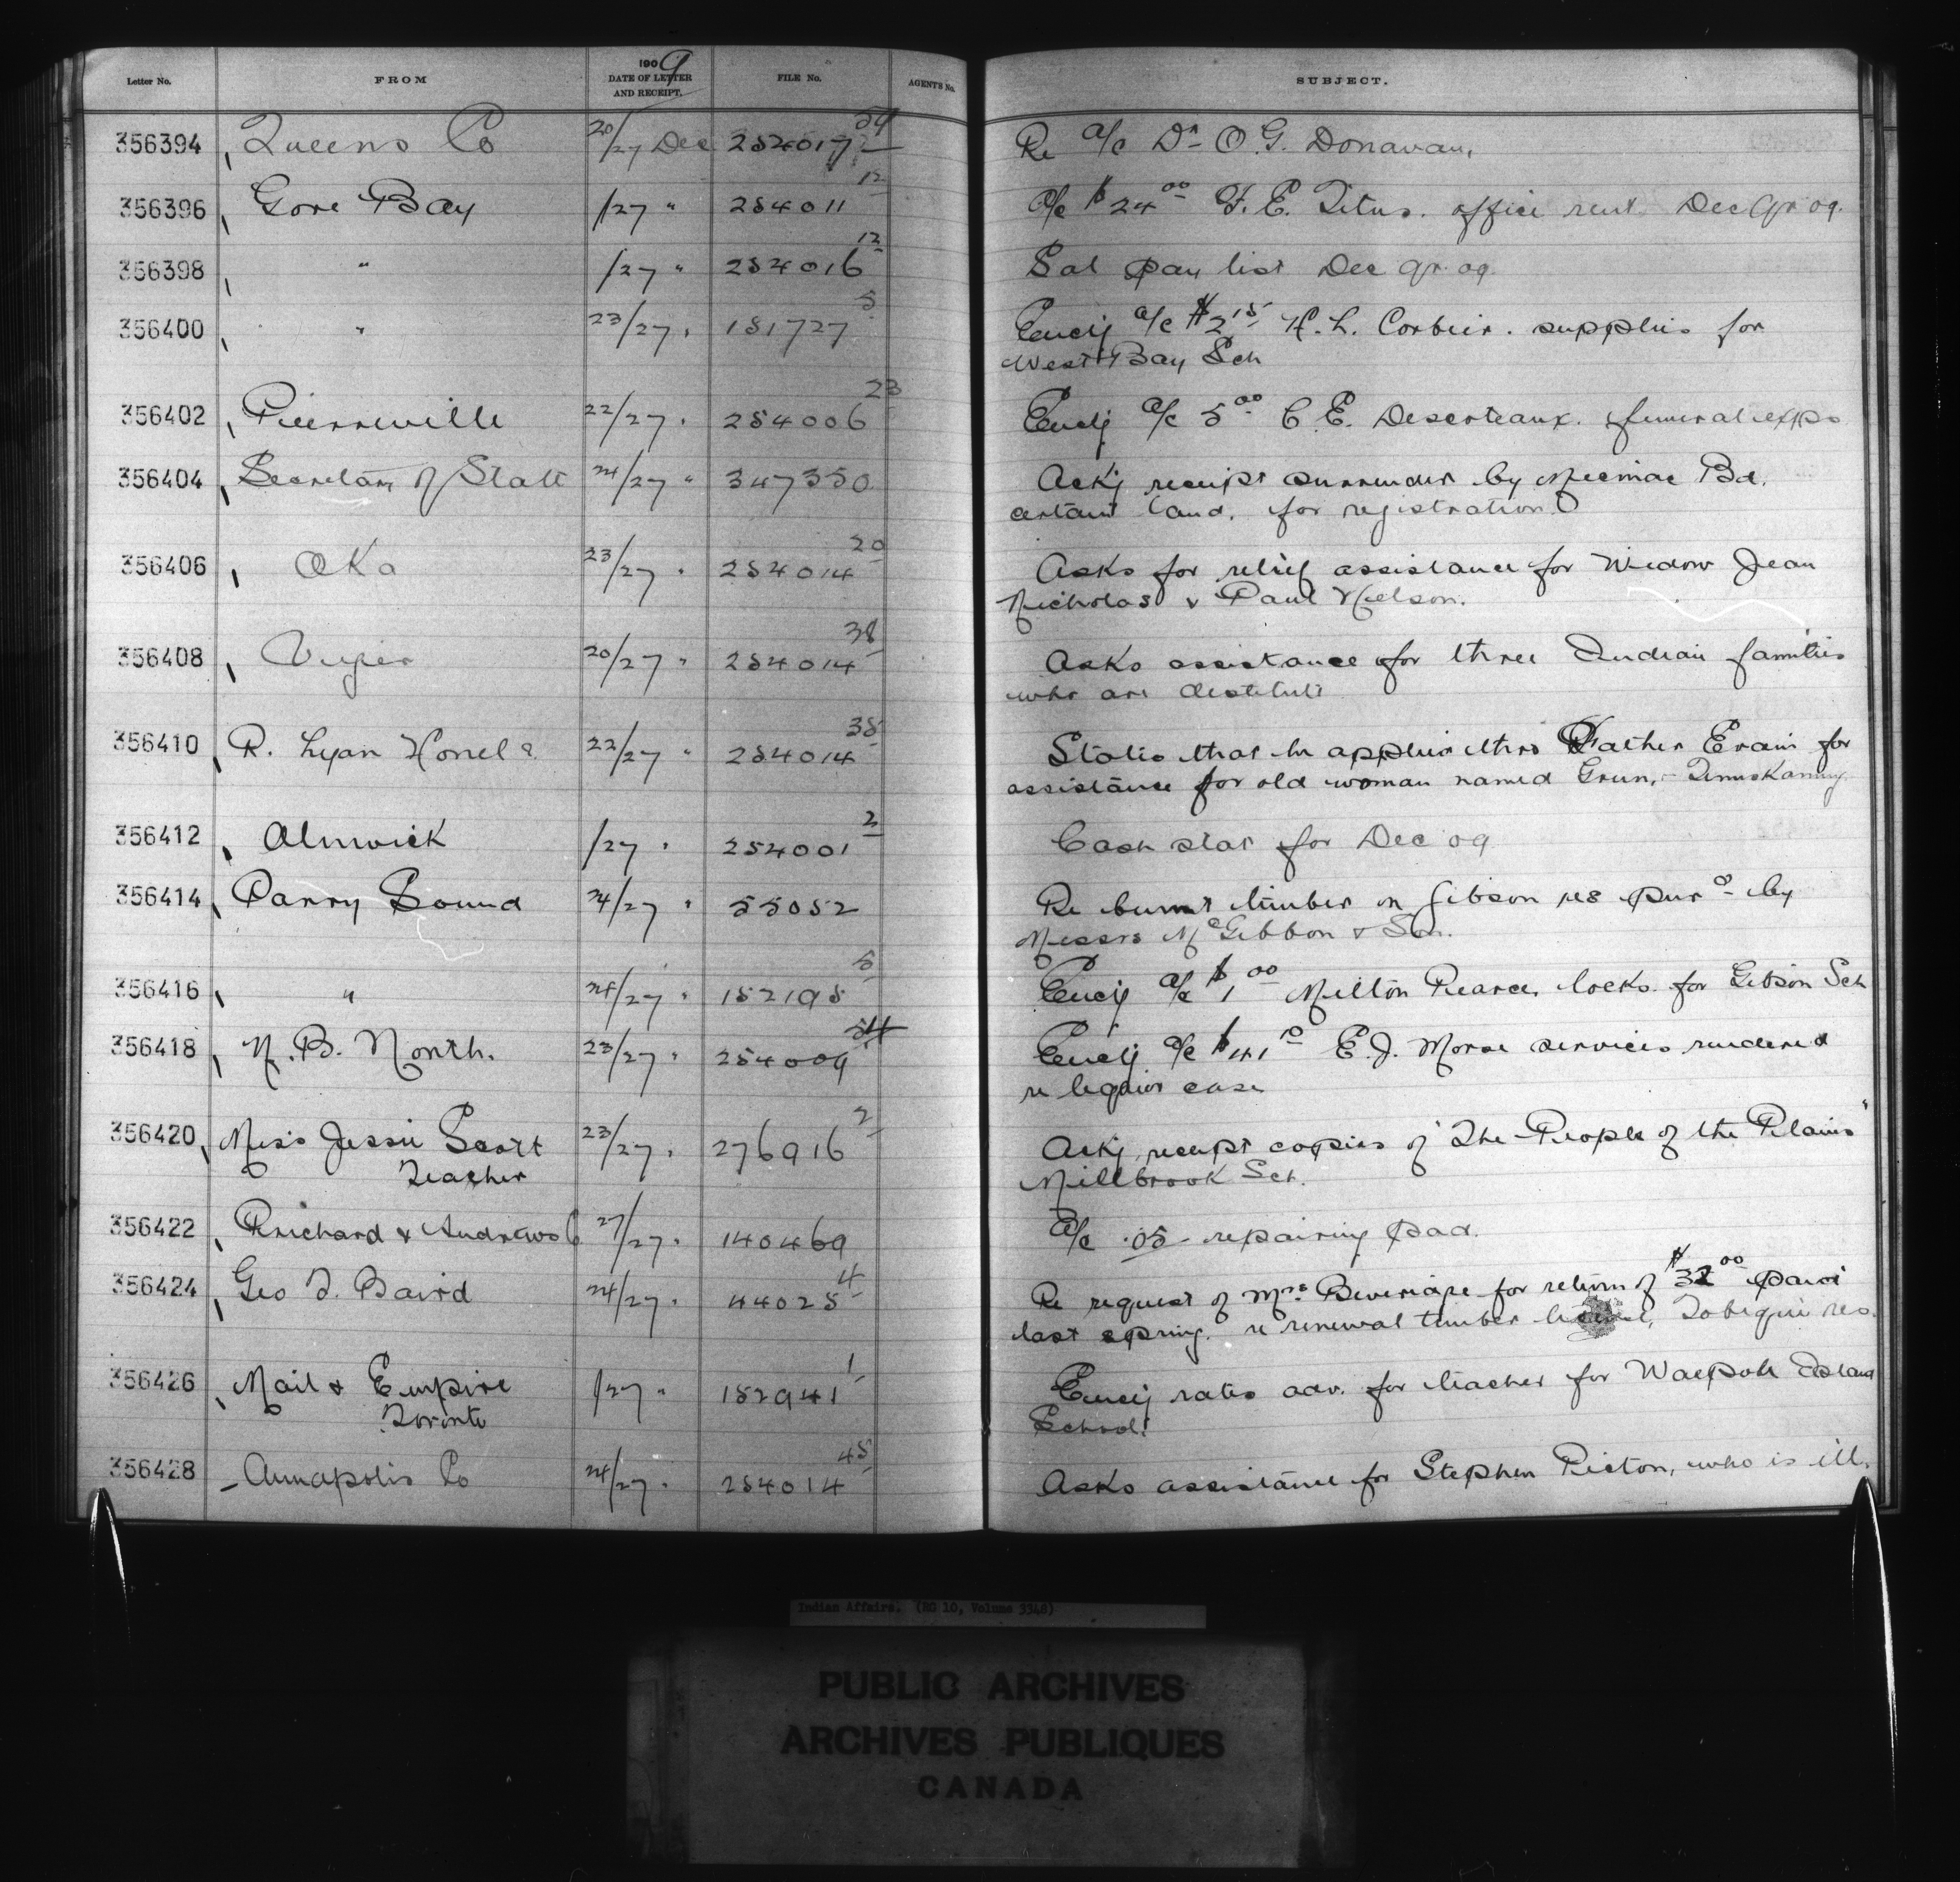 Letter No. FROM 1909 DATE OF LETTER AND RECEIPT. FILE No. AGENT'S No. SUBJECT.
356394 Queens Co 20/27 Dec 254017 54 Re a/c Dr O. G. Donavan,
356396 Gore Bay /27 " 254011 12 a/c $24 00 F. E. Titus. office rent Dec qr 09.
356398 " /27 " 254016 12 Sal pay list Dec qr 09
356400 " 23/27 " 151727 5 Enclg a/c $2 15 H. L. Corbier. supplies for
West Bay Sch
356402 Pierreville 22/27 " 254006 23 Enclg a/c 5 00 C. E. Descoteaux. funeral exps
356404 Secretary of State 24/27 " 347350 Ackg receipt surrender by Micmac Bd.
certain land. for registration.
356406 Oka 23/27 " 254014 20 Asks for relief assistance for Widow Jean
Nicholas & Paul Nelson.
356408 20/27 " 254014 38 Asks assistance for three Indian families
who are destitute
356410 R. 22/27 " 254014 38 States that he applies thro Father for
assistance for old woman named
356412 Alnwick /27 " 254001 2 Cash stat for Dec 09
356414 Parry Sound 24/27 " 55052 Re burnt timber on Gibson res purd by
Messrs McGibbon & Son.
356416 " 24/27 " 152195 5 Enclg a/c $1 00 Milton Pearce, locks for Gibson Sch
356418 N. B. North. 23/27 " 254009 54 Enclg a/c $41 E. J. Morse services rendered
re liquor case
356420 Miss Jessie Scott 23/27 " 276916 2 Ackg receipt copies of "The People of the Plains"
Teacher Millbrook Sch.
356422 Prichard & Andrews Co 27/27 " 140469 a/c .05 repairing pad.
356424 Geo T. Baird 24/27 " 44025 4 Re request of Mrs Beveridge for return of $32 00 paid
last spring. re renewal timber license, Tobique res.
356426 Mail & Empire /27 " 152941 1 Enclg rates adv. for teacher for Walpole Island
Toronto School.
356428 Annapolis Co 24/27 " 254014 45 Asks assistance for Stephen Picton, who is ill.
Indian Affairs. (RG 10, Volume 3348)
PUBLIC ARCHIVES
ARCHIVES PUBLIQUES
CANADA